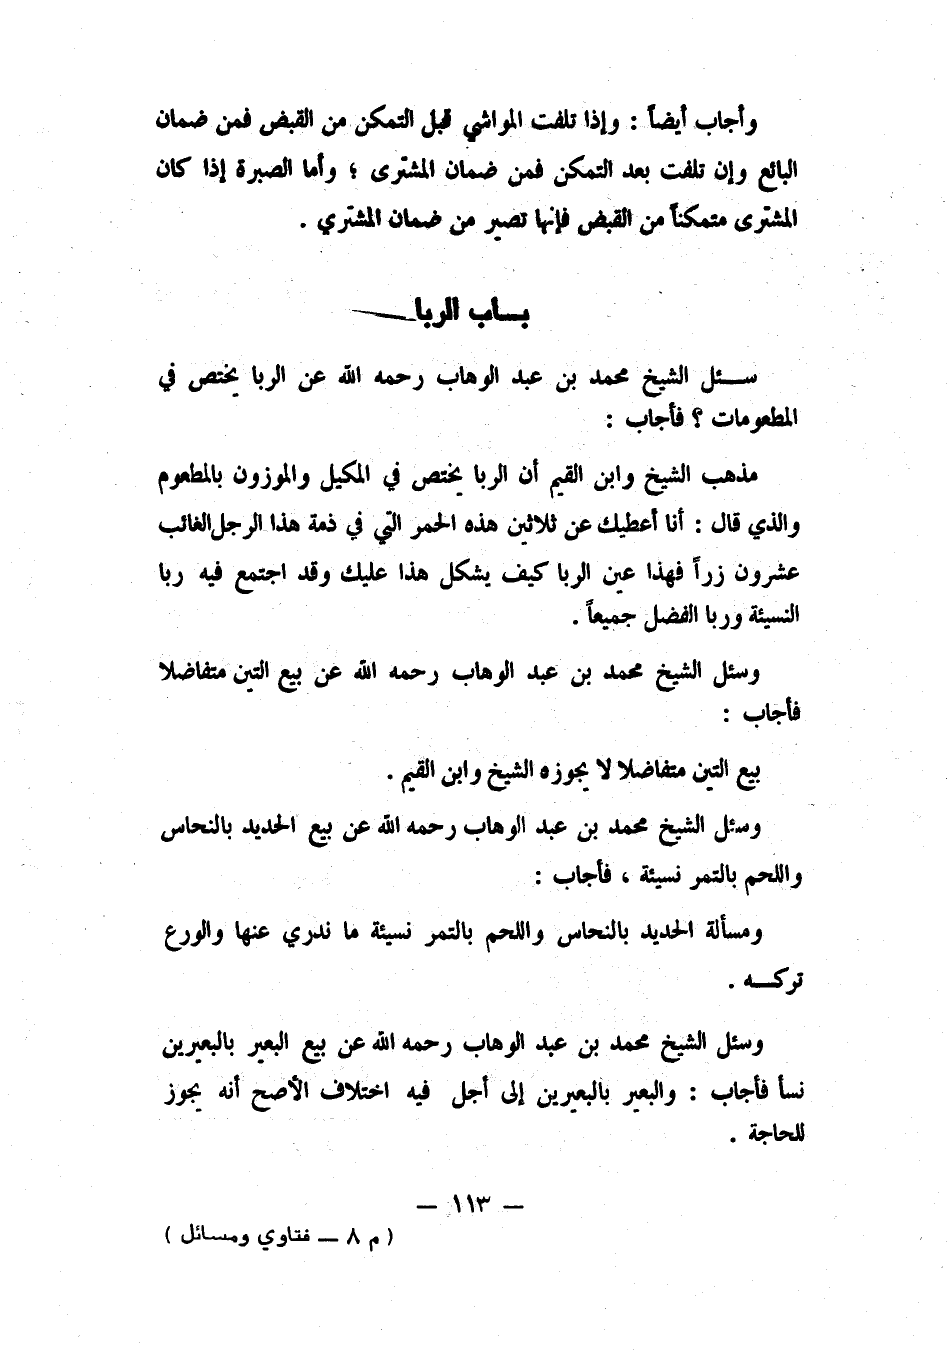 وأجاب أيضاً : وإذا تلفت المواشي قبل التمكن من القبض فمن ضمان
البائع وإن تلفت بعد التمكن فمن ضمان المشترى ؛ وأما الصبرة إذا كان
المشترى متمكناً من القبض فإنها تصير من ضمان المشتري .
بـــاب الربا
ســـئل الشيخ محمد بن عبد الوهاب رحمه الله عن الربا يختص في
المطعومات ؟ فأجاب :
مذهب الشيخ وابن القيم أن الربا يختص في المكيل والموزون بالمطعوم
والذي قال : أنا أعطيك عن ثلاثين هذه الحمر التي في ذمة هذا الرجل الغائب
عشرون زراً فهذا عين الربا كيف يشكل هذا عليك وقد اجتمع فيه ربا
النسيئة وربا الفضل جميعاً .
وسئل الشيخ محمد بن عبد الوهاب رحمه الله عن بيع التين متفاضلا
فأجاب :
بيع التين متفاضلا لا يجوزه الشيخ وابن القيم .
وسئل الشيخ محمد بن عبد الوهاب رحمه الله عن بيع الحديد بالنحاس
واللحم بالتمر نسيئة ، فأجاب :
ومسألة الحديد بالنحاس واللحم بالتمر نسيئة ما ندري عنها والورع
تركـــه .
وسئل الشيخ محمد بن عبد الوهاب رحمه الله عن بيع البعير بالبعيرين
نسأ فأجاب : والبعير بالبعيرين إلى أجل فيه اختلاف الأصح أنه يجوز
للحاجة .
— ١١٣ —
( م ٨ — فتاوي ومسائل )